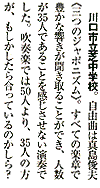 川口市立芝中学校。自由曲は真島俊夫
《三つのジャポニスム》。すべての楽章で
豊かな響きが聞き取ることができ、人数
が35人であることを感じさせない演奏で
した。吹奏楽では50人より、35人の方
が、もしかしたら合っているのかしら？